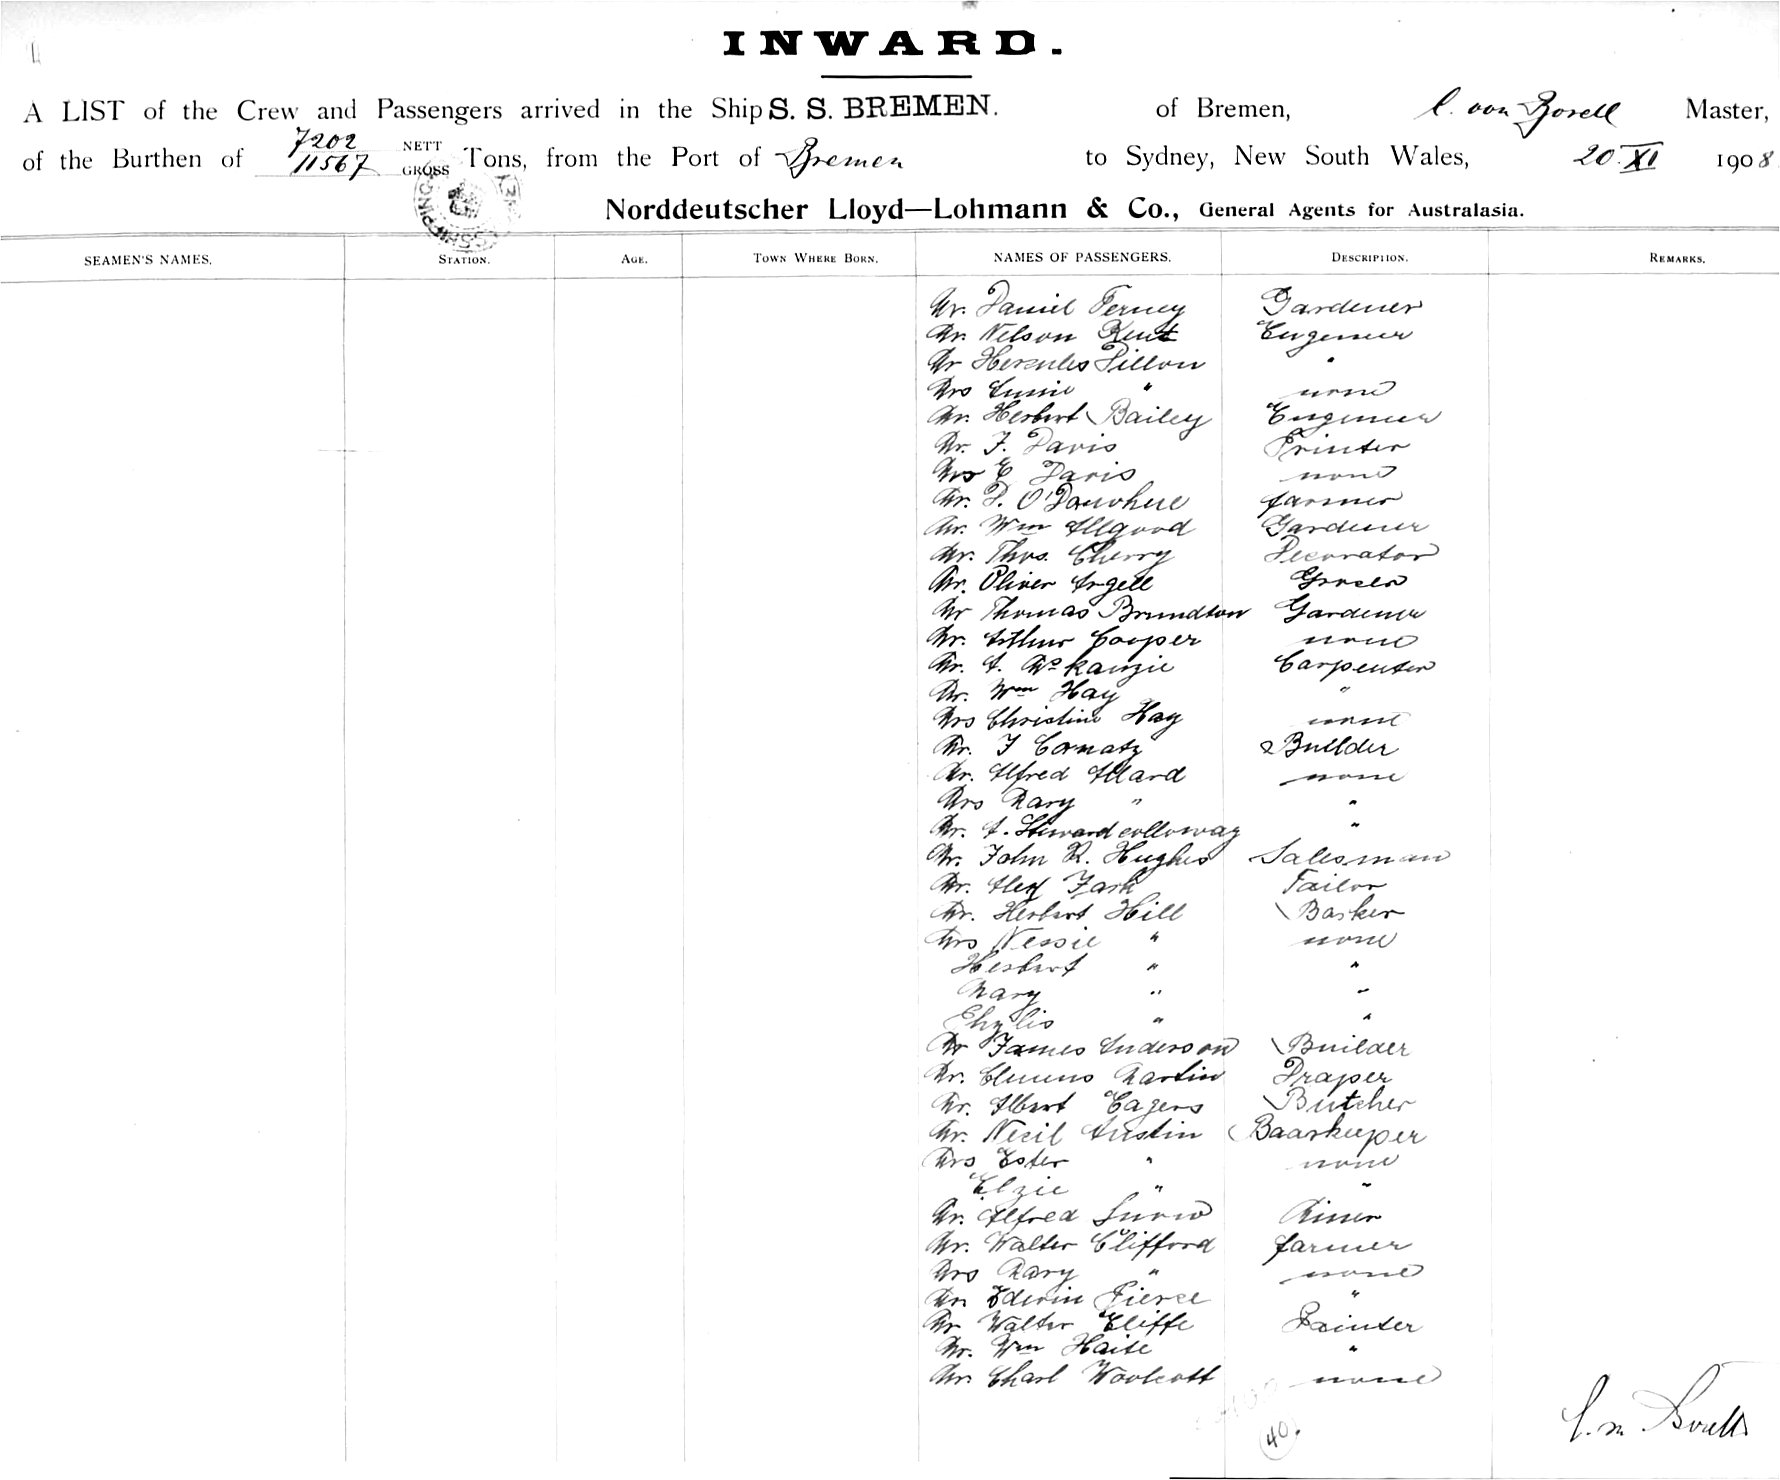 INWARD.
A LIST of the Crew and Passengers arrived in the Ship S. S. BREMEN. of Bremen, C. von Borell Master,
of the Burthen of 7202 NETT 11567 GROSS Tons, from the Port of Bremen to Sydney, New South Wales, 20. XI 1908
Norddeutscher Lloyd—Lohmann & Co., General Agents for Australasia.
SEAMEN'S NAMES. STATION. AGE. TOWN WHERE BORN. NAMES OF PASSENGERS. DESCRIPTION. REMARKS.
Mr. Daniel Ferney Gardener
Mr. Nelson Kent Engineer
Mr Hercules Pillon "
Mrs Annie " none
Mr. Herbert Bailey Engineer
Mr. F. Davis Printer
Mrs E Davis none
Mr. P. farmer
Mr. Wm Allgood Gardener
Mr. Thos. Cherry Decorator
Mr. Oliver Angell Grocer
Mr Thomas Brundton Gardener
Mr. Arthur Cooper none
Mr. A. McKanzie Carpenter
Mr. Wm Hay "
Mrs Christine Hay none
Mr. F Cornatz Builder
Mr. Alfred Allard none
Mrs Mary " "
Mr. A. Steward colloway "
Mr. John R. Hughes Salesman
Mr. Alex Tailor
Mr. Herbert Hill Barker
Mrs Nessie " none
Herbert " "
Mary " "
Phylis " "
Mr James Anderson Builder
Mr. Clemens Martin Draper
Mr. Albert Eagers Butcher
Mr. Necil Austin Baarkeeper
Mrs Ester " none
Elzie " "
Mr. Alfred Snow Miner
Mr. Walter Clifford farmer
Mrs Mary " none
Mr. Edwin Pierce "
Mr Walter Eliffe Painter
Mr. Wm Haite "
Mr. Charl Woolcott none
40.